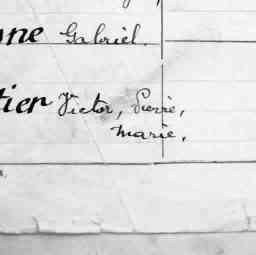 nne Gabriel.
tier Victor, Pierre,
Marie.